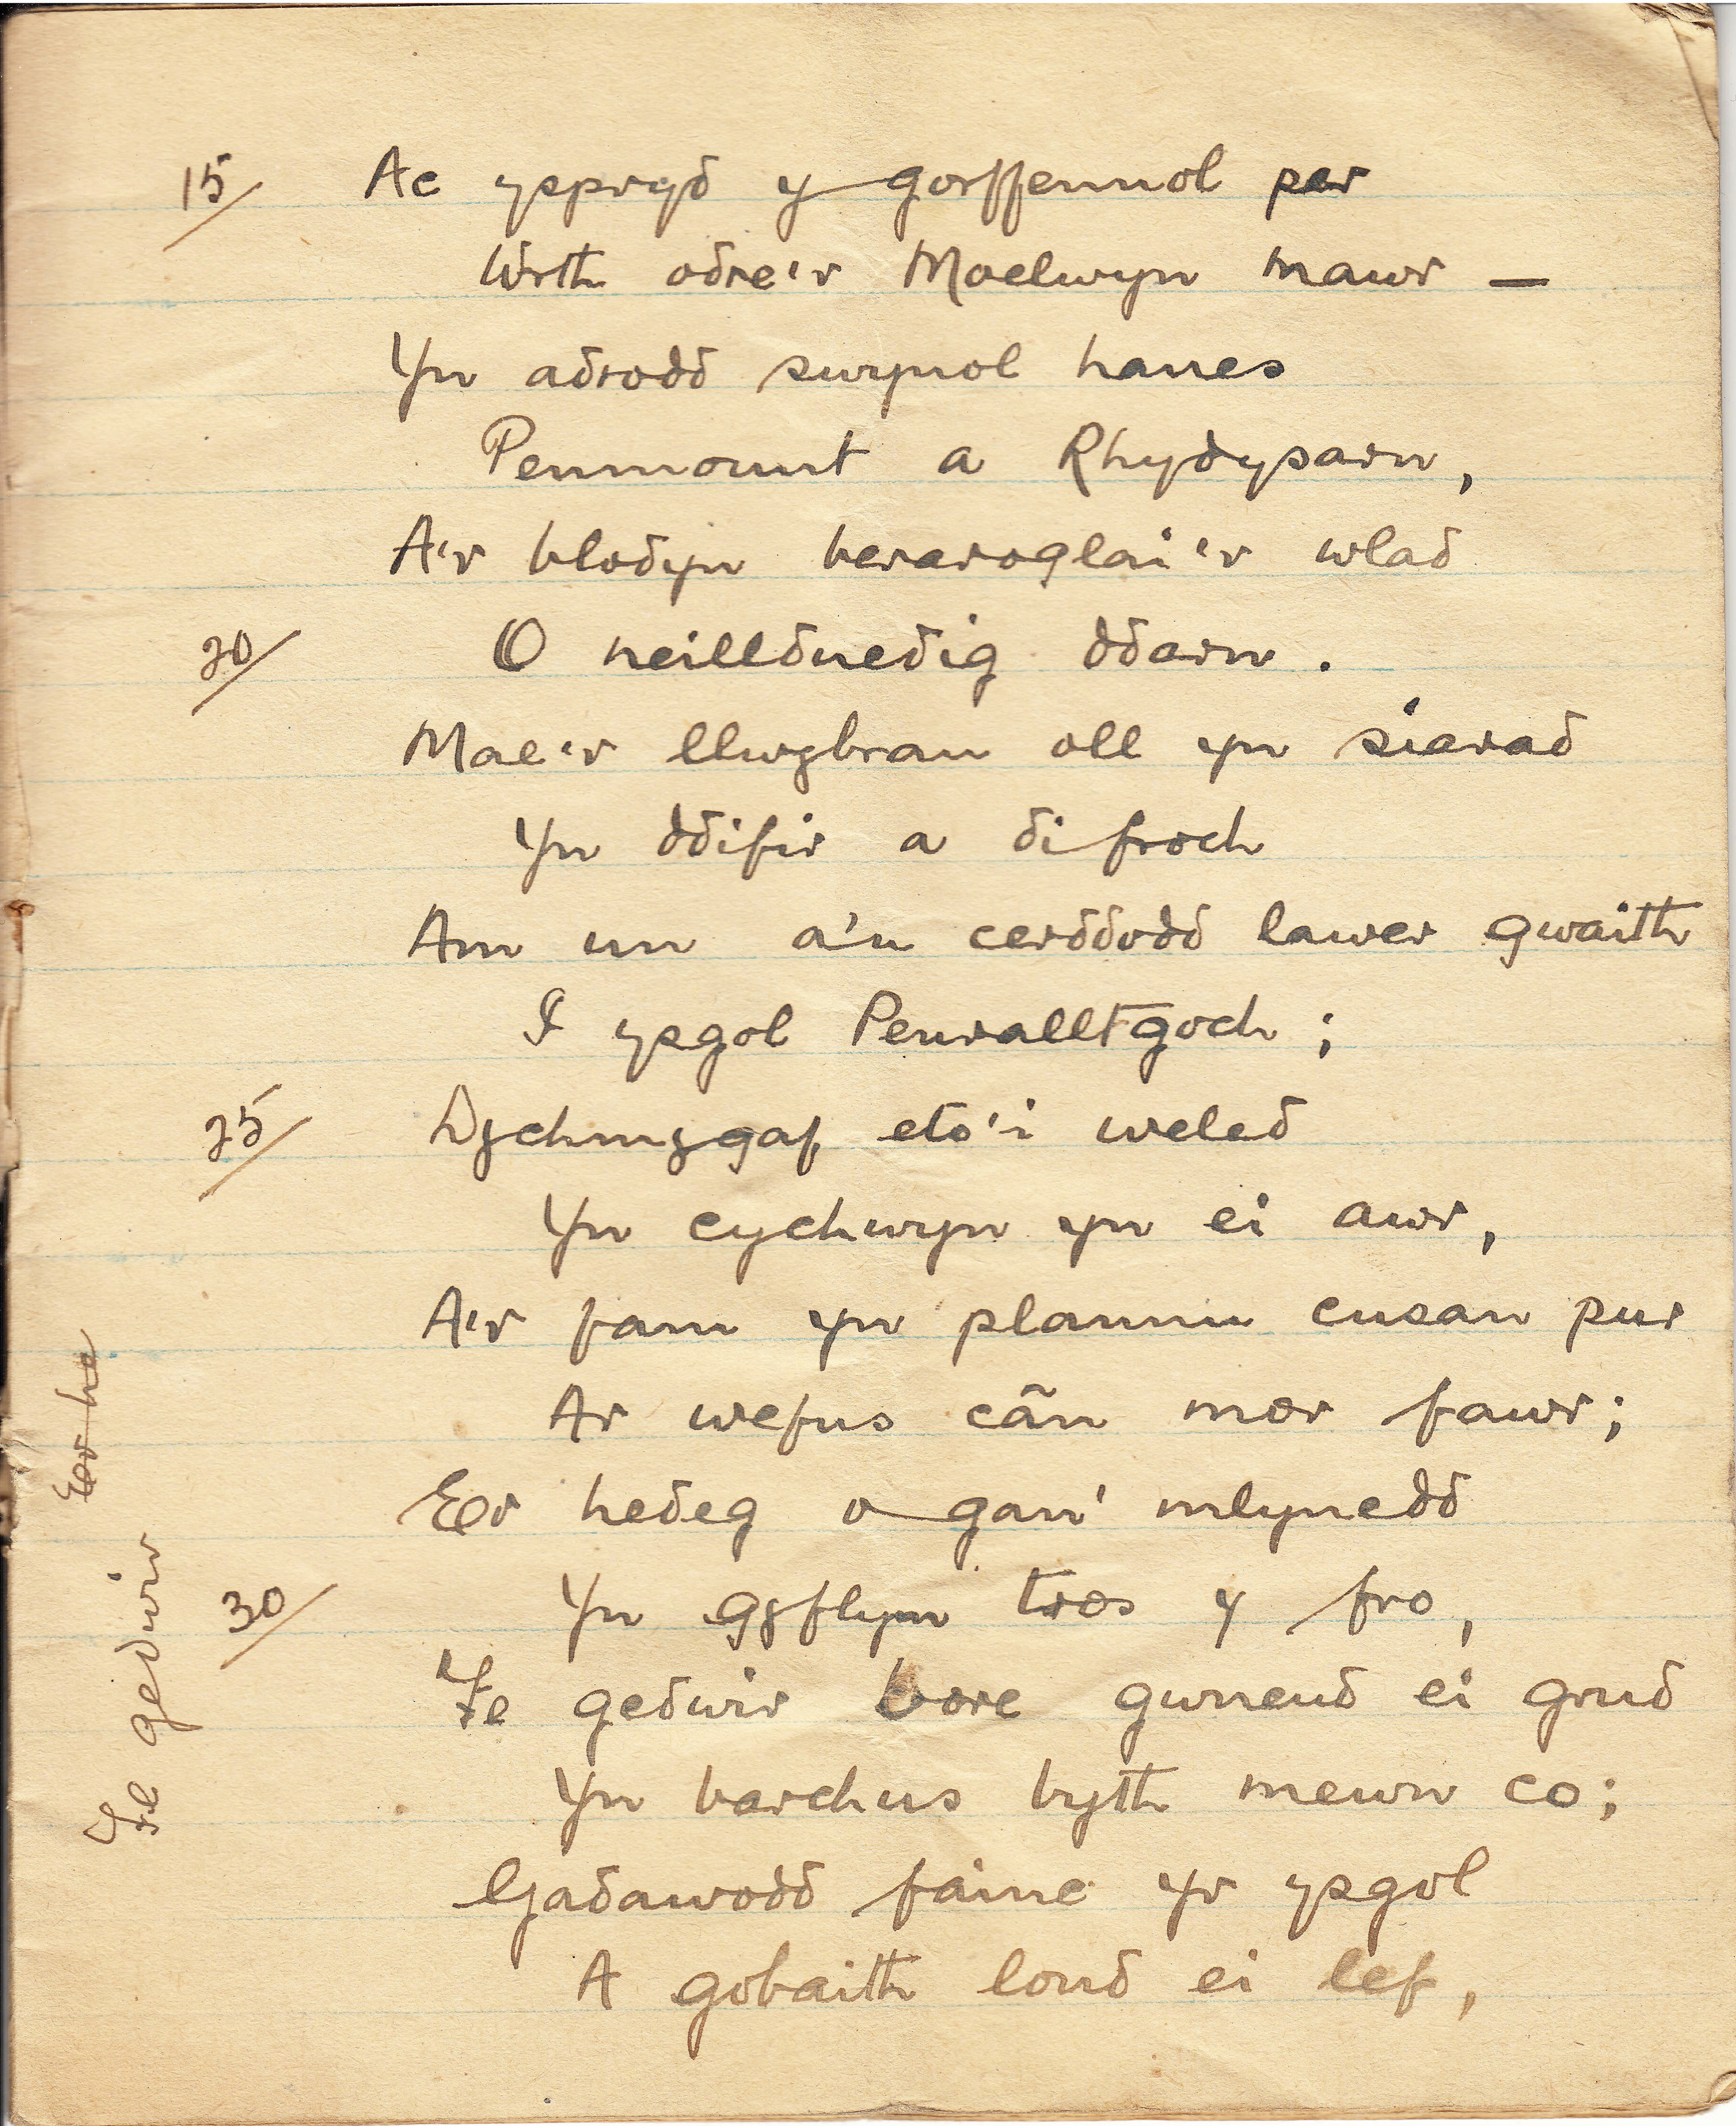 15/ Ac yspryd y gorffennol per
Wrth odre'r Moelwyn mawr —
Yn adrodd swynol hanes
Penmount a Rhydysarn,
A'r blodyn beraroglai'r wlad
20/ O neillduedig ddarn.
Mae'r llwybrau oll yn siarad
Yn ddifir a difroch
Am un a'u cerddodd lawer gwaith
I ysgol Penralltgoch;
25/ Dychmygaf eto'i weled
Yn cychwyn yn ei awr,
A'r fam yn plannu cusan pur
Ar wefus cân mor fawr;
Er hedeg o gan' mlynedd
30/ Yn gyflym tros y fro,
Fe gedwir bore gwneud ei grud
Yn barchus byth mewn co;
Gadawodd fainc yr ysgol
A gobaith lond ei lef,
Er he
Fe gedwir